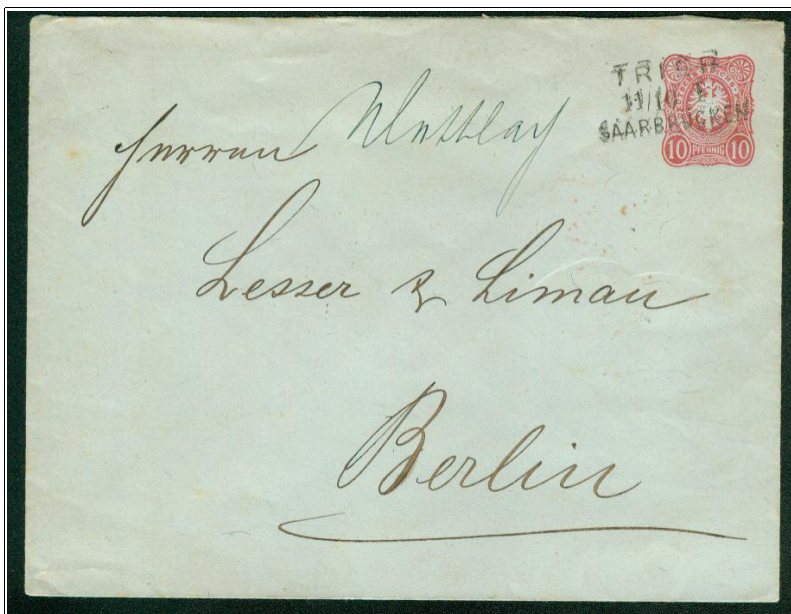 TRIER
11/10
SAARBRÜCKEN
10 PFENNIG 10
Herren Mettlach
Lesser & Liman
Berlin